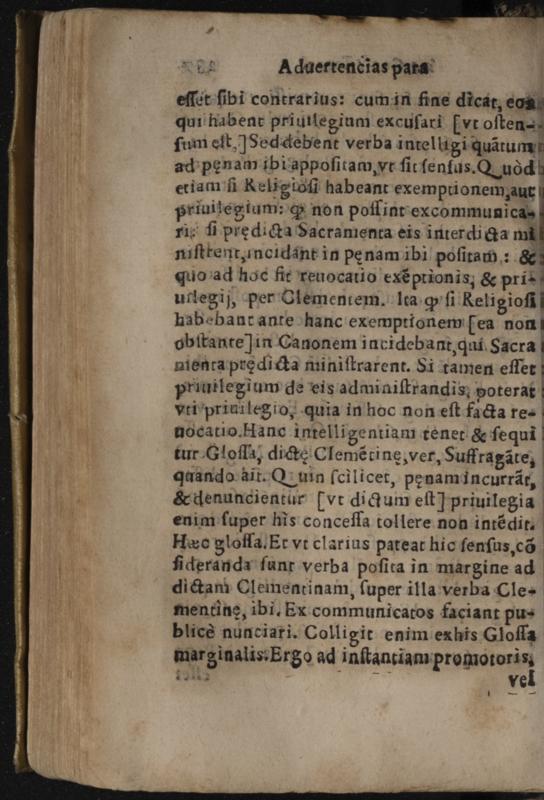 Aduertencias para
esset sibi contrarius: cum in fine dicat, eos
qui habent priuilegium excusari [vt osten-
sum est,] Sed debent verba intelligi quãtum
ad pęnam ibi appositam, vt sit sensus. Quòd
etiam si Religiosi habeant exemptionem, aut
priuilegium: ꝙ non possint excommunica-
ri: si prędicta Sacramenta eis interdicta mi
nistrent, incidant in pęnam ibi positam: &
quo ad hoc fit reuocatio exẽptionis, & pri-
uilegij, per Clementem. Ita ꝙ si Religiosi
habebant ante hanc exemptionem [ea non
obstante] in Canonem incidebant, qui Sacra
menta prędicta ministrarent. Si tamen esset
priuilegium de eis administrandis, poterat
vti priuilegio, quia in hoc non est facta re-
uocatio. Hanc intelligentiam tenet & sequi
tur Glossa, dictę Clemẽtinę, ver, Suffragãte,
quando ait. Quin scilicet, pęnam incurrãt,
& denuncientur [vt dictum est] priuilegia
enim super his concessa tollere non intẽdit.
Hæc glossa. Et vt clarius pateat hic sensus, cõ
sideranda sunt verba posita in margine ad
dictam Clementinam, super illa verba Cle-
mentinę, ibi. Ex communicatos faciant pu-
blicè nunciari. Colligit enim exhis Glossa
marginalis. Ergo ad instantiam promotoris,
vel